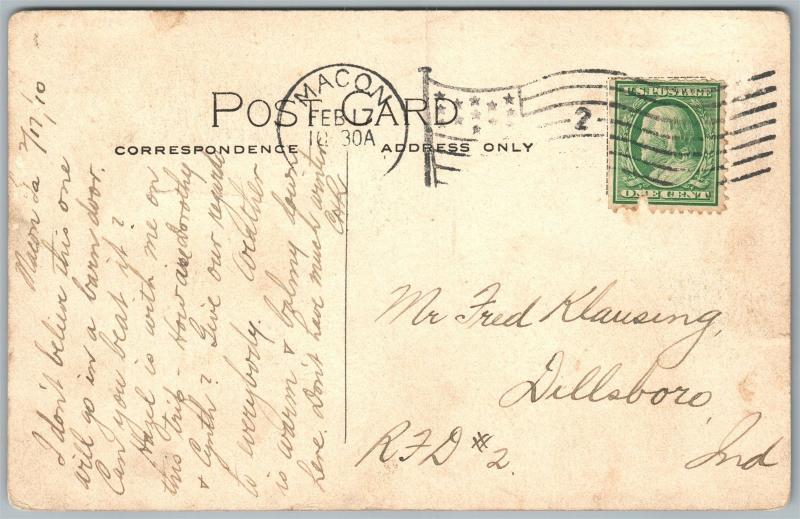 POST CARD
CORRESPONDENCE
ADDRESS ONLY
MACON
FEB 17
10 30A
2
U.S. POSTAGE
ONE CENT
Macon Ga 2/17/10
I don't believe this one
will go in a barn door.
Can you beat it?
Hazel is with me on
this trip - How are Dorothy
& Cynth? Give our regards
to everybody. Weather
is warm & balmy down
here. Don't have much winter
Mr Fred Klausing,
Dillsboro
RFD #2. Ind